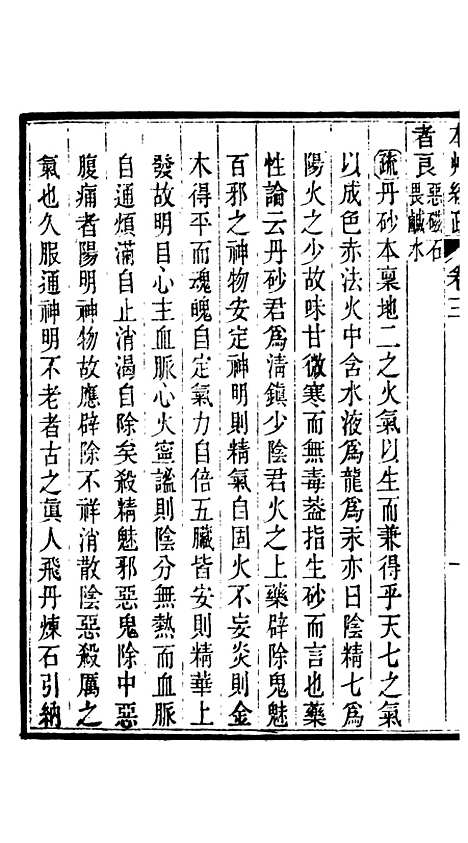 者良惡磁石畏鹹水
疏丹砂本稟地二之火氣以生而兼得乎天七之氣
以成色赤法火中含水液爲龍爲汞亦曰陰精七爲
陽火之少故味甘微寒而無毒葢指生砂而言也藥
性論云丹砂君爲淸鎮少陰君火之上藥辟除鬼魅
百邪之神物安定神明則精氣自固火不妄炎則金
木得平而魂魄自定氣力自倍五臟皆安則精華上
發故明目心主血脈心火寧謐則陰分無熱而血脈
自通煩滿自止消渴自除矣殺精魅邪惡鬼除中惡
腹痛者陽明神物故應辟除不祥消散陰惡殺厲之
氣也久服通神明不老者古之眞人飛丹煉石引納